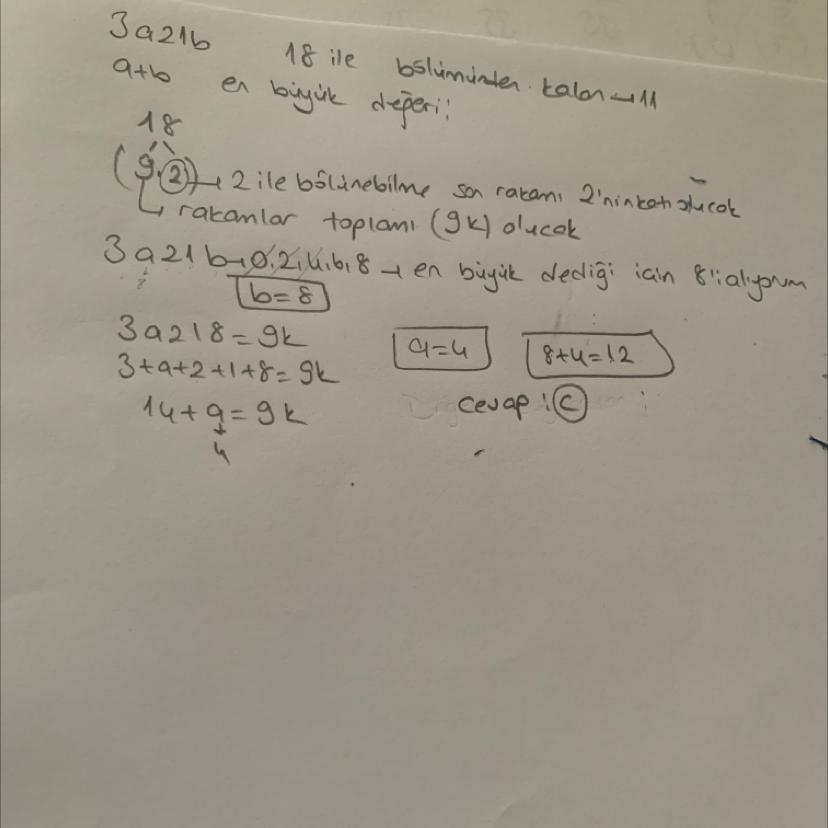 3a21b 18 ile bölümünden kalan → 11
a+b en büyük değeri!
18
(9.2) → 2 ile bölünebilme son rakamı 2'nin katı olucak
↳ rakamlar toplamı (9k) olucak
3a21b → 0,2,4,6,8 → en büyük dediği için 8'i alıyorum
8
b=8
3a218=9k a=4 8+4=12
3+a+2+1+8=9k
14+a=9k cevap: C
4